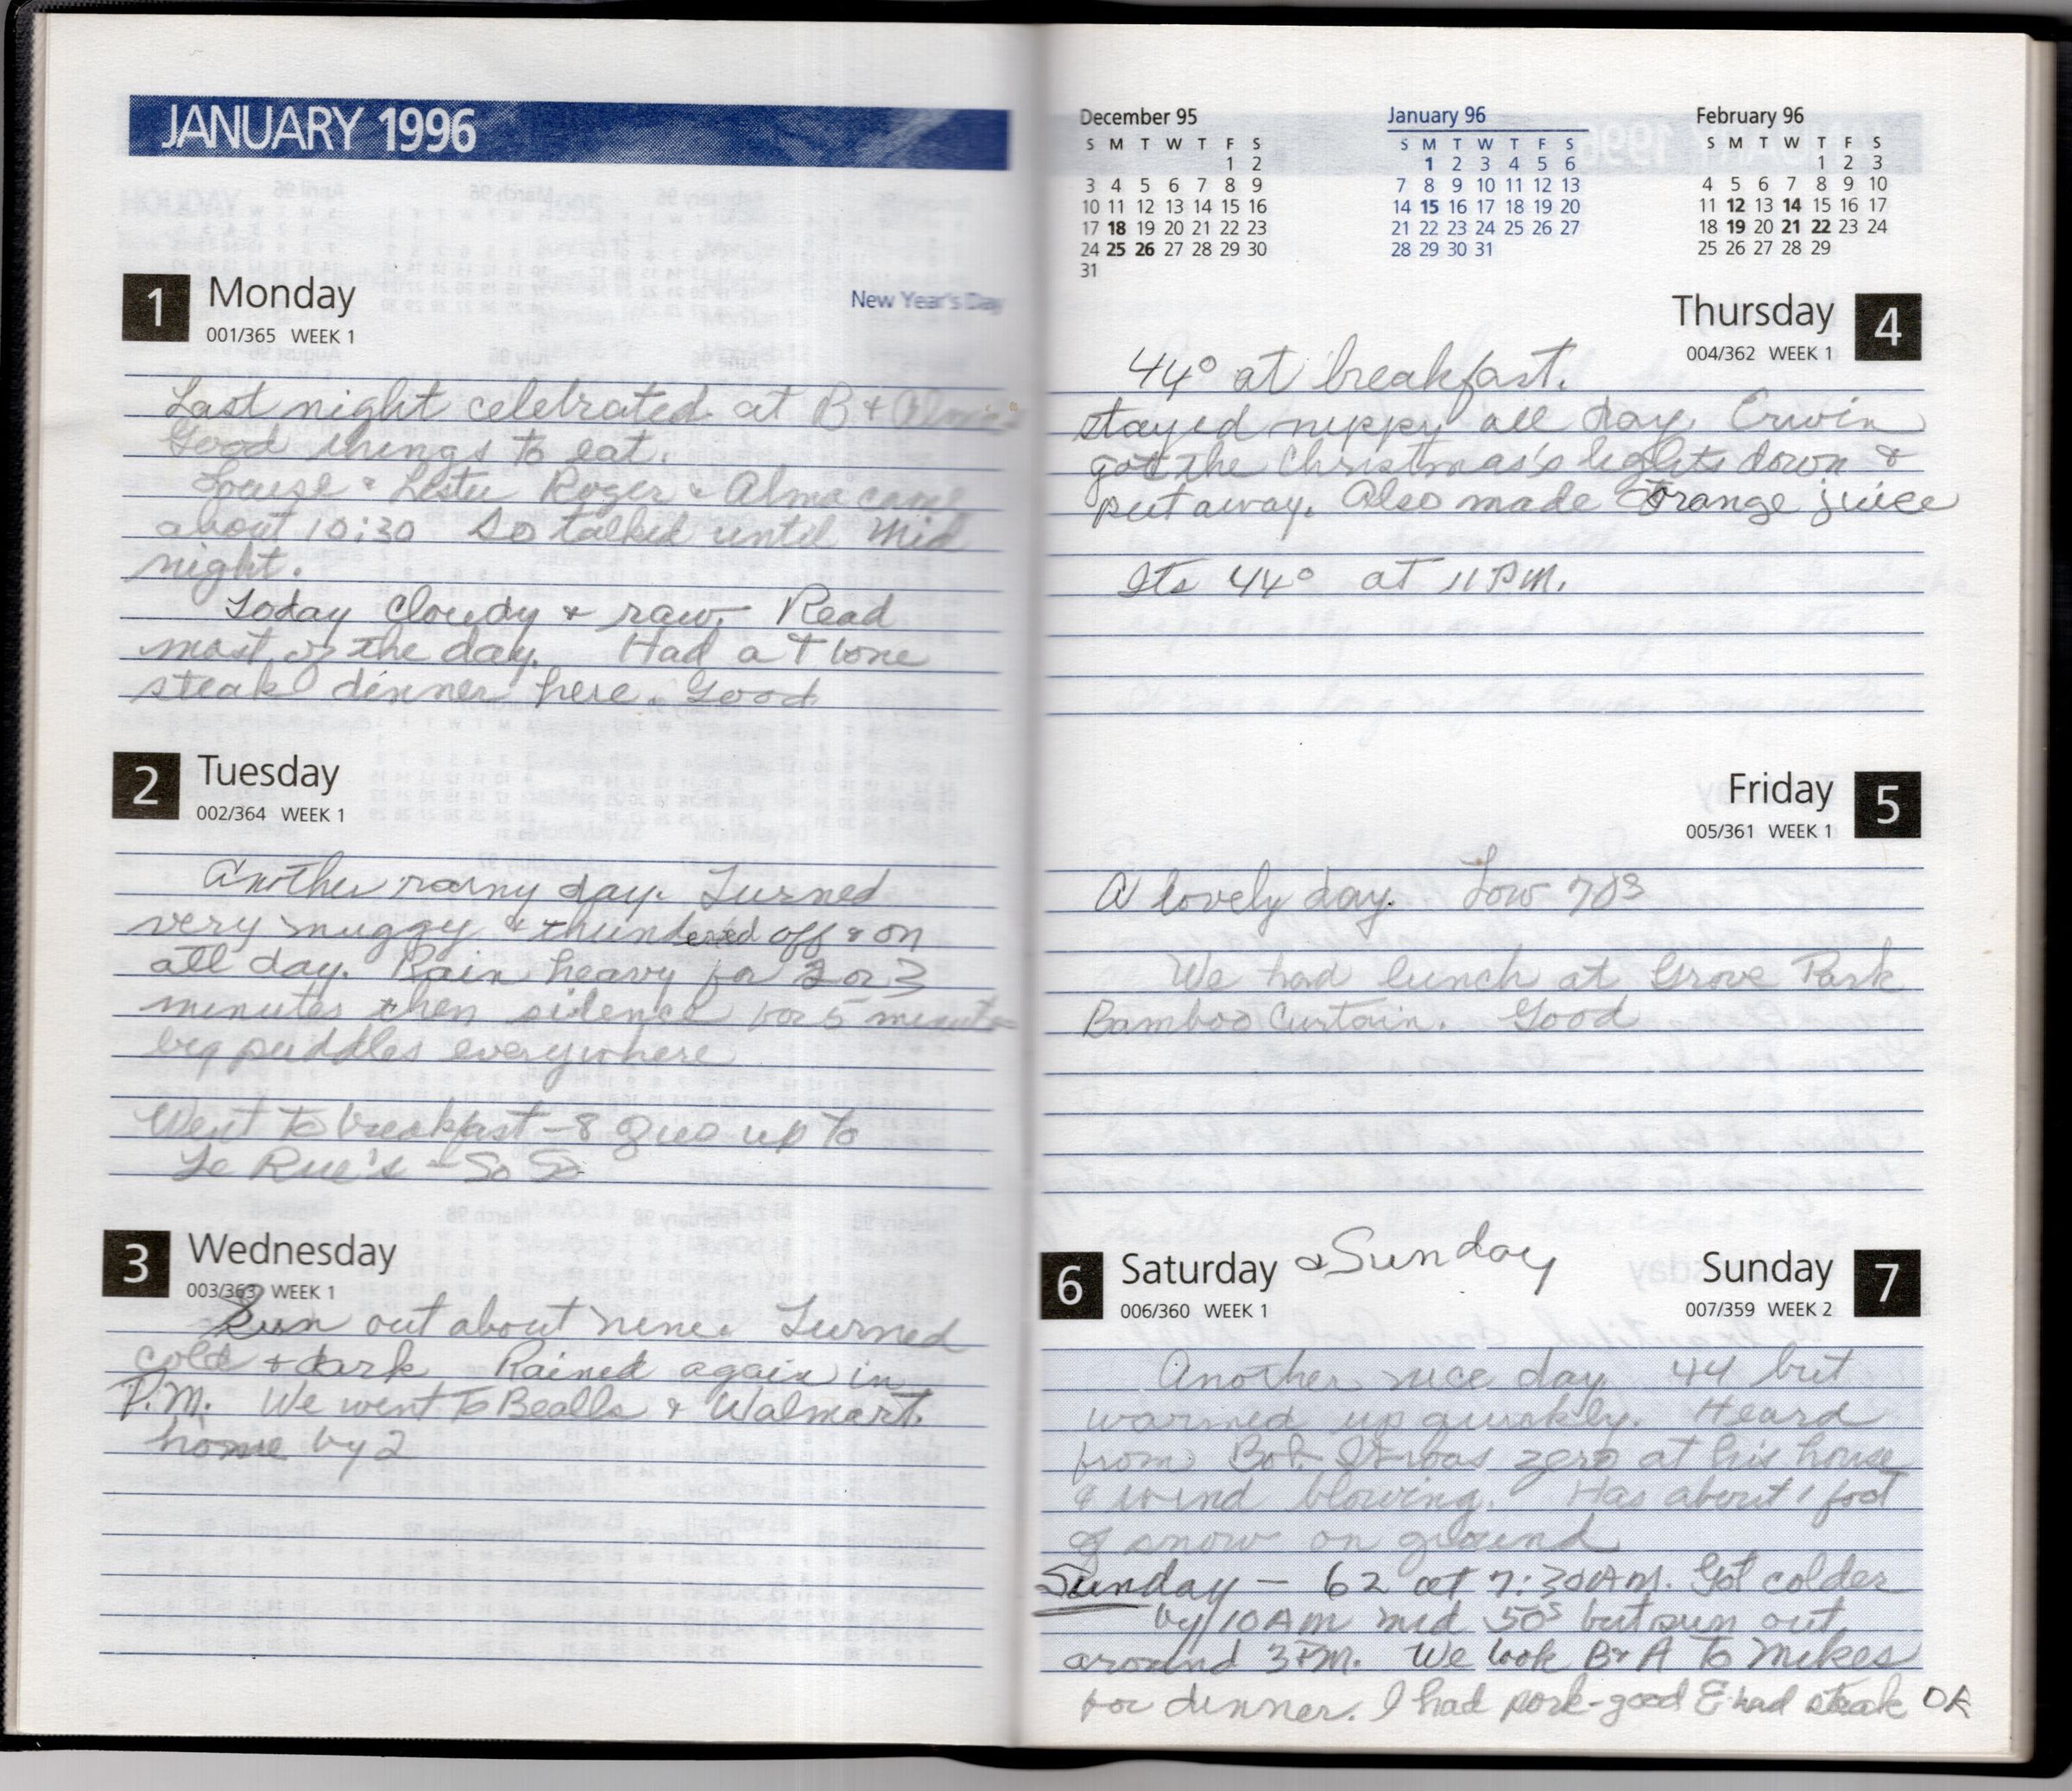 JANUARY 1996
1 Monday
New Year's Day
001/365 WEEK 1
Last night celebrated at B + Alma's
Good things to eat.
Louise & Lester Roger & Alma came
about 10:30 So talked until Mid
night.
Today cloudy + raw. Read
most of the day. Had a T bone
steak dinner here. Good
2 Tuesday
002/364 WEEK 1
Another rainy day. Turned
very muggy & thundered off & on
all day. Rain heavy for 2 or 3
minutes then silence for 5 minutes
big puddles everywhere
Went to breakfast - 8 of us up to
Le Rue's - So So
3 Wednesday
003/363 WEEK 1
Sun out about nine. Turned
cold + dark Rained again in
P.M. We went to Bealls & Walmart.
home by 2
December 95
S M T W T F S
1 2
3 4 5 6 7 8 9
10 11 12 13 14 15 16
17 18 19 20 21 22 23
24 25 26 27 28 29 30
31
January 96
S M T W T F S
1 2 3 4 5 6
7 8 9 10 11 12 13
14 15 16 17 18 19 20
21 22 23 24 25 26 27
28 29 30 31
February 96
S M T W T F S
1 2 3
4 5 6 7 8 9 10
11 12 13 14 15 16 17
18 19 20 21 22 23 24
25 26 27 28 29
Thursday 4
004/362 WEEK 1
44° at breakfast.
stayed nippy all day. Erwin
got the Christmas's lights down &
put away. Also made Orange juice
Its 44° at 11 PM.
Friday 5
005/361 WEEK 1
A lovely day. Low 70s
We had lunch at Grove Park
Bamboo Curtain. Good
6 Saturday & Sunday
006/360 WEEK 1
Sunday 7
007/359 WEEK 2
Another nice day 44 but
warmed up quickly. Heard
from Bob. It was zero at his house
& wind blowing. Has about 1 foot
of snow on ground
Sunday - 62 at 7:30 AM. Got colder
by 10 AM mid 50s but sun out
around 3 PM. We took B & A to Mikes
for dinner. I had pork-good E had steak OK